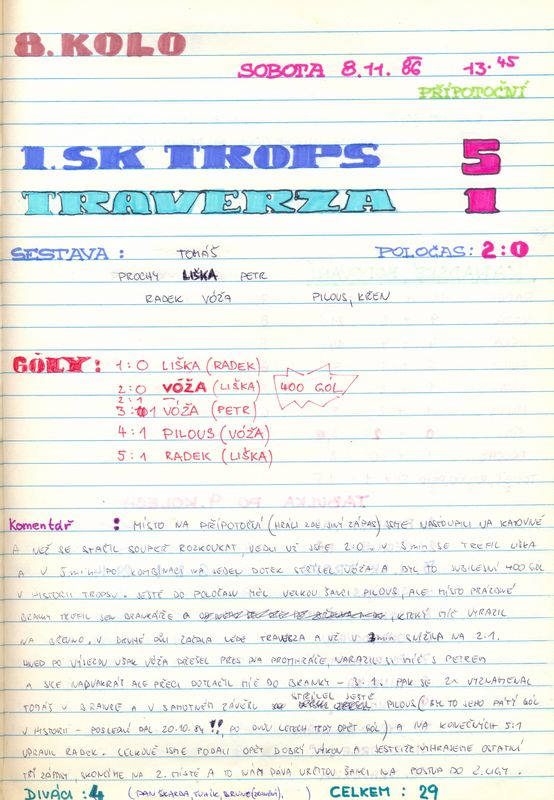 8. KOLO
SOBOTA 8.11. 86 13.45
PŘÍPOTOČNÍ
1. SK TROPS 5
TRAVERZA 1
SESTAVA : TOMÁŠ POLOČAS: 2:0
PROCHY LIŠKA PETR
RADEK VÓŽA PILOUS, KŘEN
GÓLY: 1:0 LIŠKA (RADEK)
2:0 VÓŽA (LIŠKA) 400 GÓL
2:1 —
3:1 VÓŽA (PETR)
4:1 PILOUS (VÓŽA)
5:1 RADEK (LIŠKA)
Komentář : MÍSTO NA PŘÍPOTOČNÍ (HRÁLI ZDE JINÝ ZÁPAS) JSME NASTOUPILI NA KAJOVNĚ
A NEŽ SE STAČIL SOUPEŘ ROZKOUKAT VEDLI UŽ JSME 2:0. V 5 MIN SE TREFIL LIŠKA
A V MIN PO KOMBINACI NA JEDEN DOTEK STŘÍLEL VÓŽA A BYL TO JUBILEJNÍ 400 GÓL
V HISTORII TROPSU. JEŠTĚ DO POLOČASU MĚL VELKOU ŠANCI PILOUS, ALE MÍSTO PRÁZDNÉ
BRANKY TREFIL JEN BRANKÁŘE A , KTERÝ MÍČ VYRAZIL
NA BŘEVNO. V DRUHÉ PŮLI ZAČALA LÉPE TRAVERZA A UŽ V MIN SNÍŽILA NA 2:1.
HNED PO VÝKOPU VŠAK VÓŽA PŘEŠEL PŘES DVA PROTIHRÁČE, NARAZIL SI MÍČ S PETREM
A SICE NADVAKRÁT ALE PŘECI DOTLAČIL MÍČ DO BRANKY - 3:1. PAK SE 2X VYZNAMENAL
TOMÁŠ V BRANCE A V SAMOTNÉM ZÁVĚRU STŘÍLEL JEŠTĚ PILOUS (BYL TO JEHO PÁTÝ GÓL
V HISTORII - POSLEDNÍ DAL 20.10.84 !! PO DVOU LETECH TEDY OPĚT GÓL) A NA KONEČNÝCH 5:1
UPRAVIL RADEK. CELKOVĚ JSME PODALI OPĚT DOBRÝ VÝKON A JESTLIŽE VYHRAJEME OSTATNÍ
TŘI ZÁPASY, SKONČÍME NA 2. MÍSTĚ A TO NÁM DÁVÁ URČITOU ŠANCI NA POSTUP DO 2. LIGY.
DIVÁCI : 4 (PAN ŠKARDA, TUHÍK, BRUNO , ) CELKEM : 29